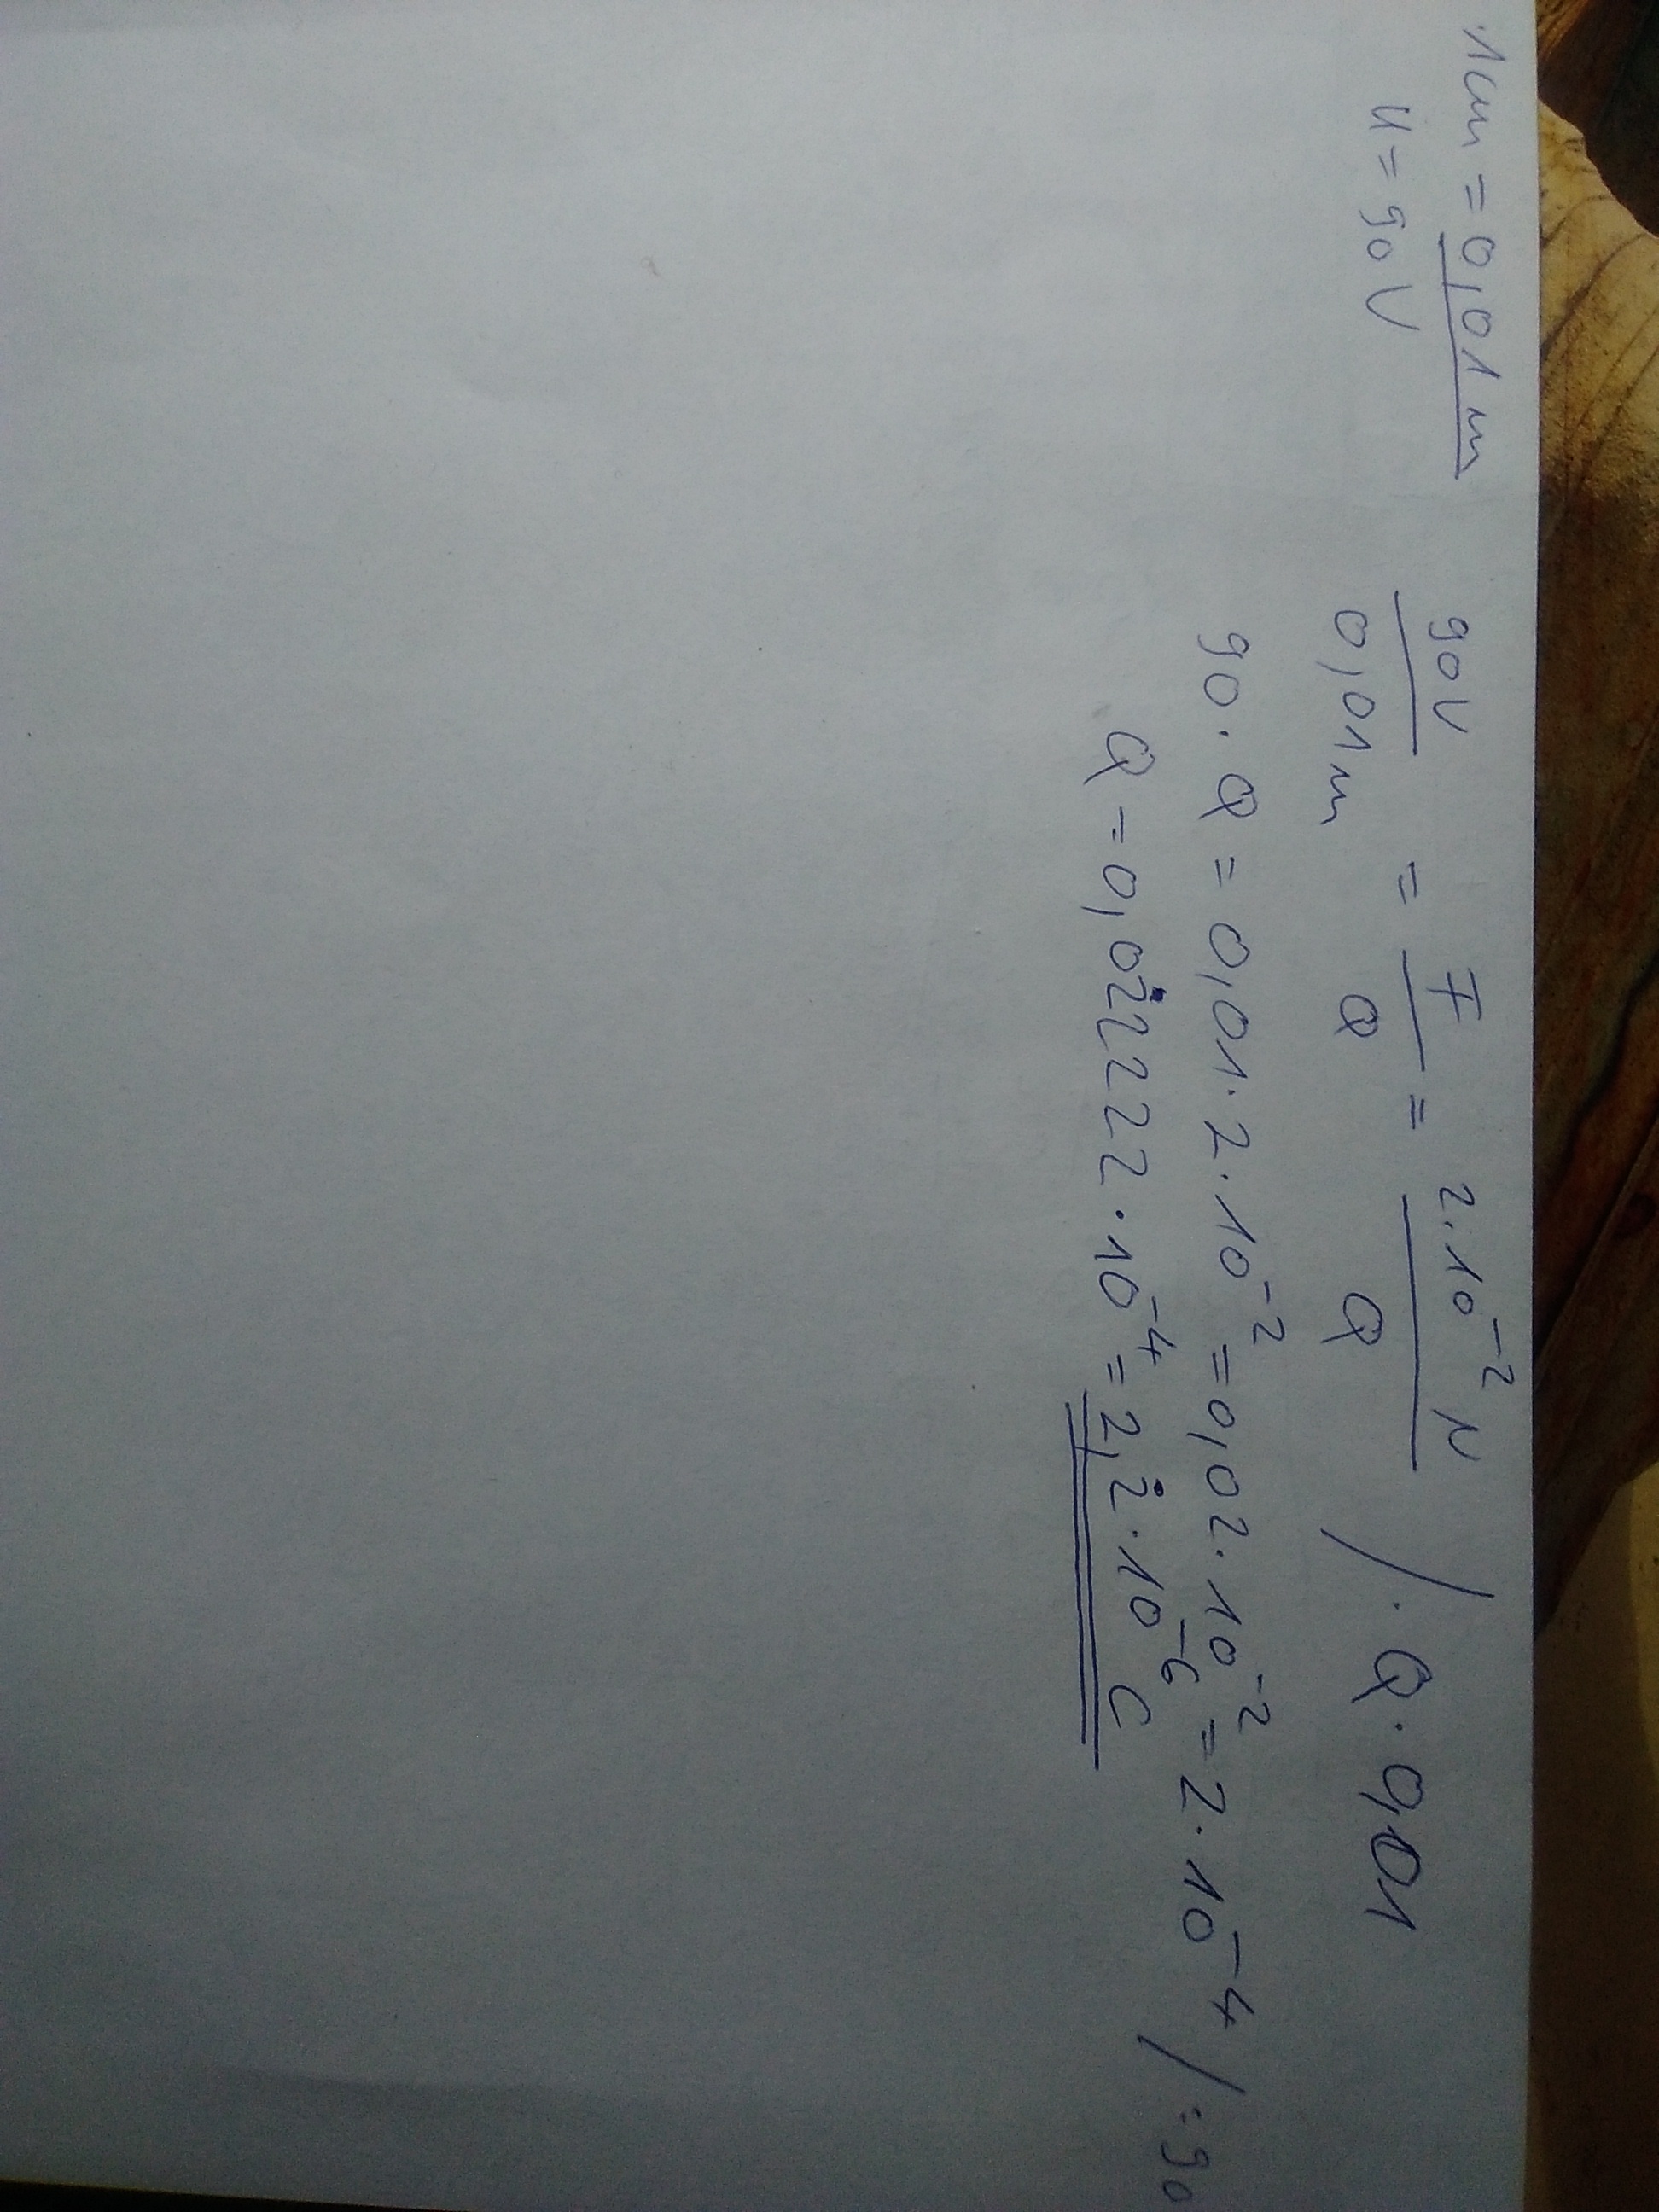 1cm = 0,01m
U = 90V
90V / 0,01m = F / Q = 2·10⁻² N / Q /· Q · 0,01
90 · Q = 0,01 · 2 · 10⁻² = 0,02 · 10⁻² = 2 · 10⁻⁴ / :90
Q = 0,02222 · 10⁻⁴ = 2,2 · 10⁻⁶ C